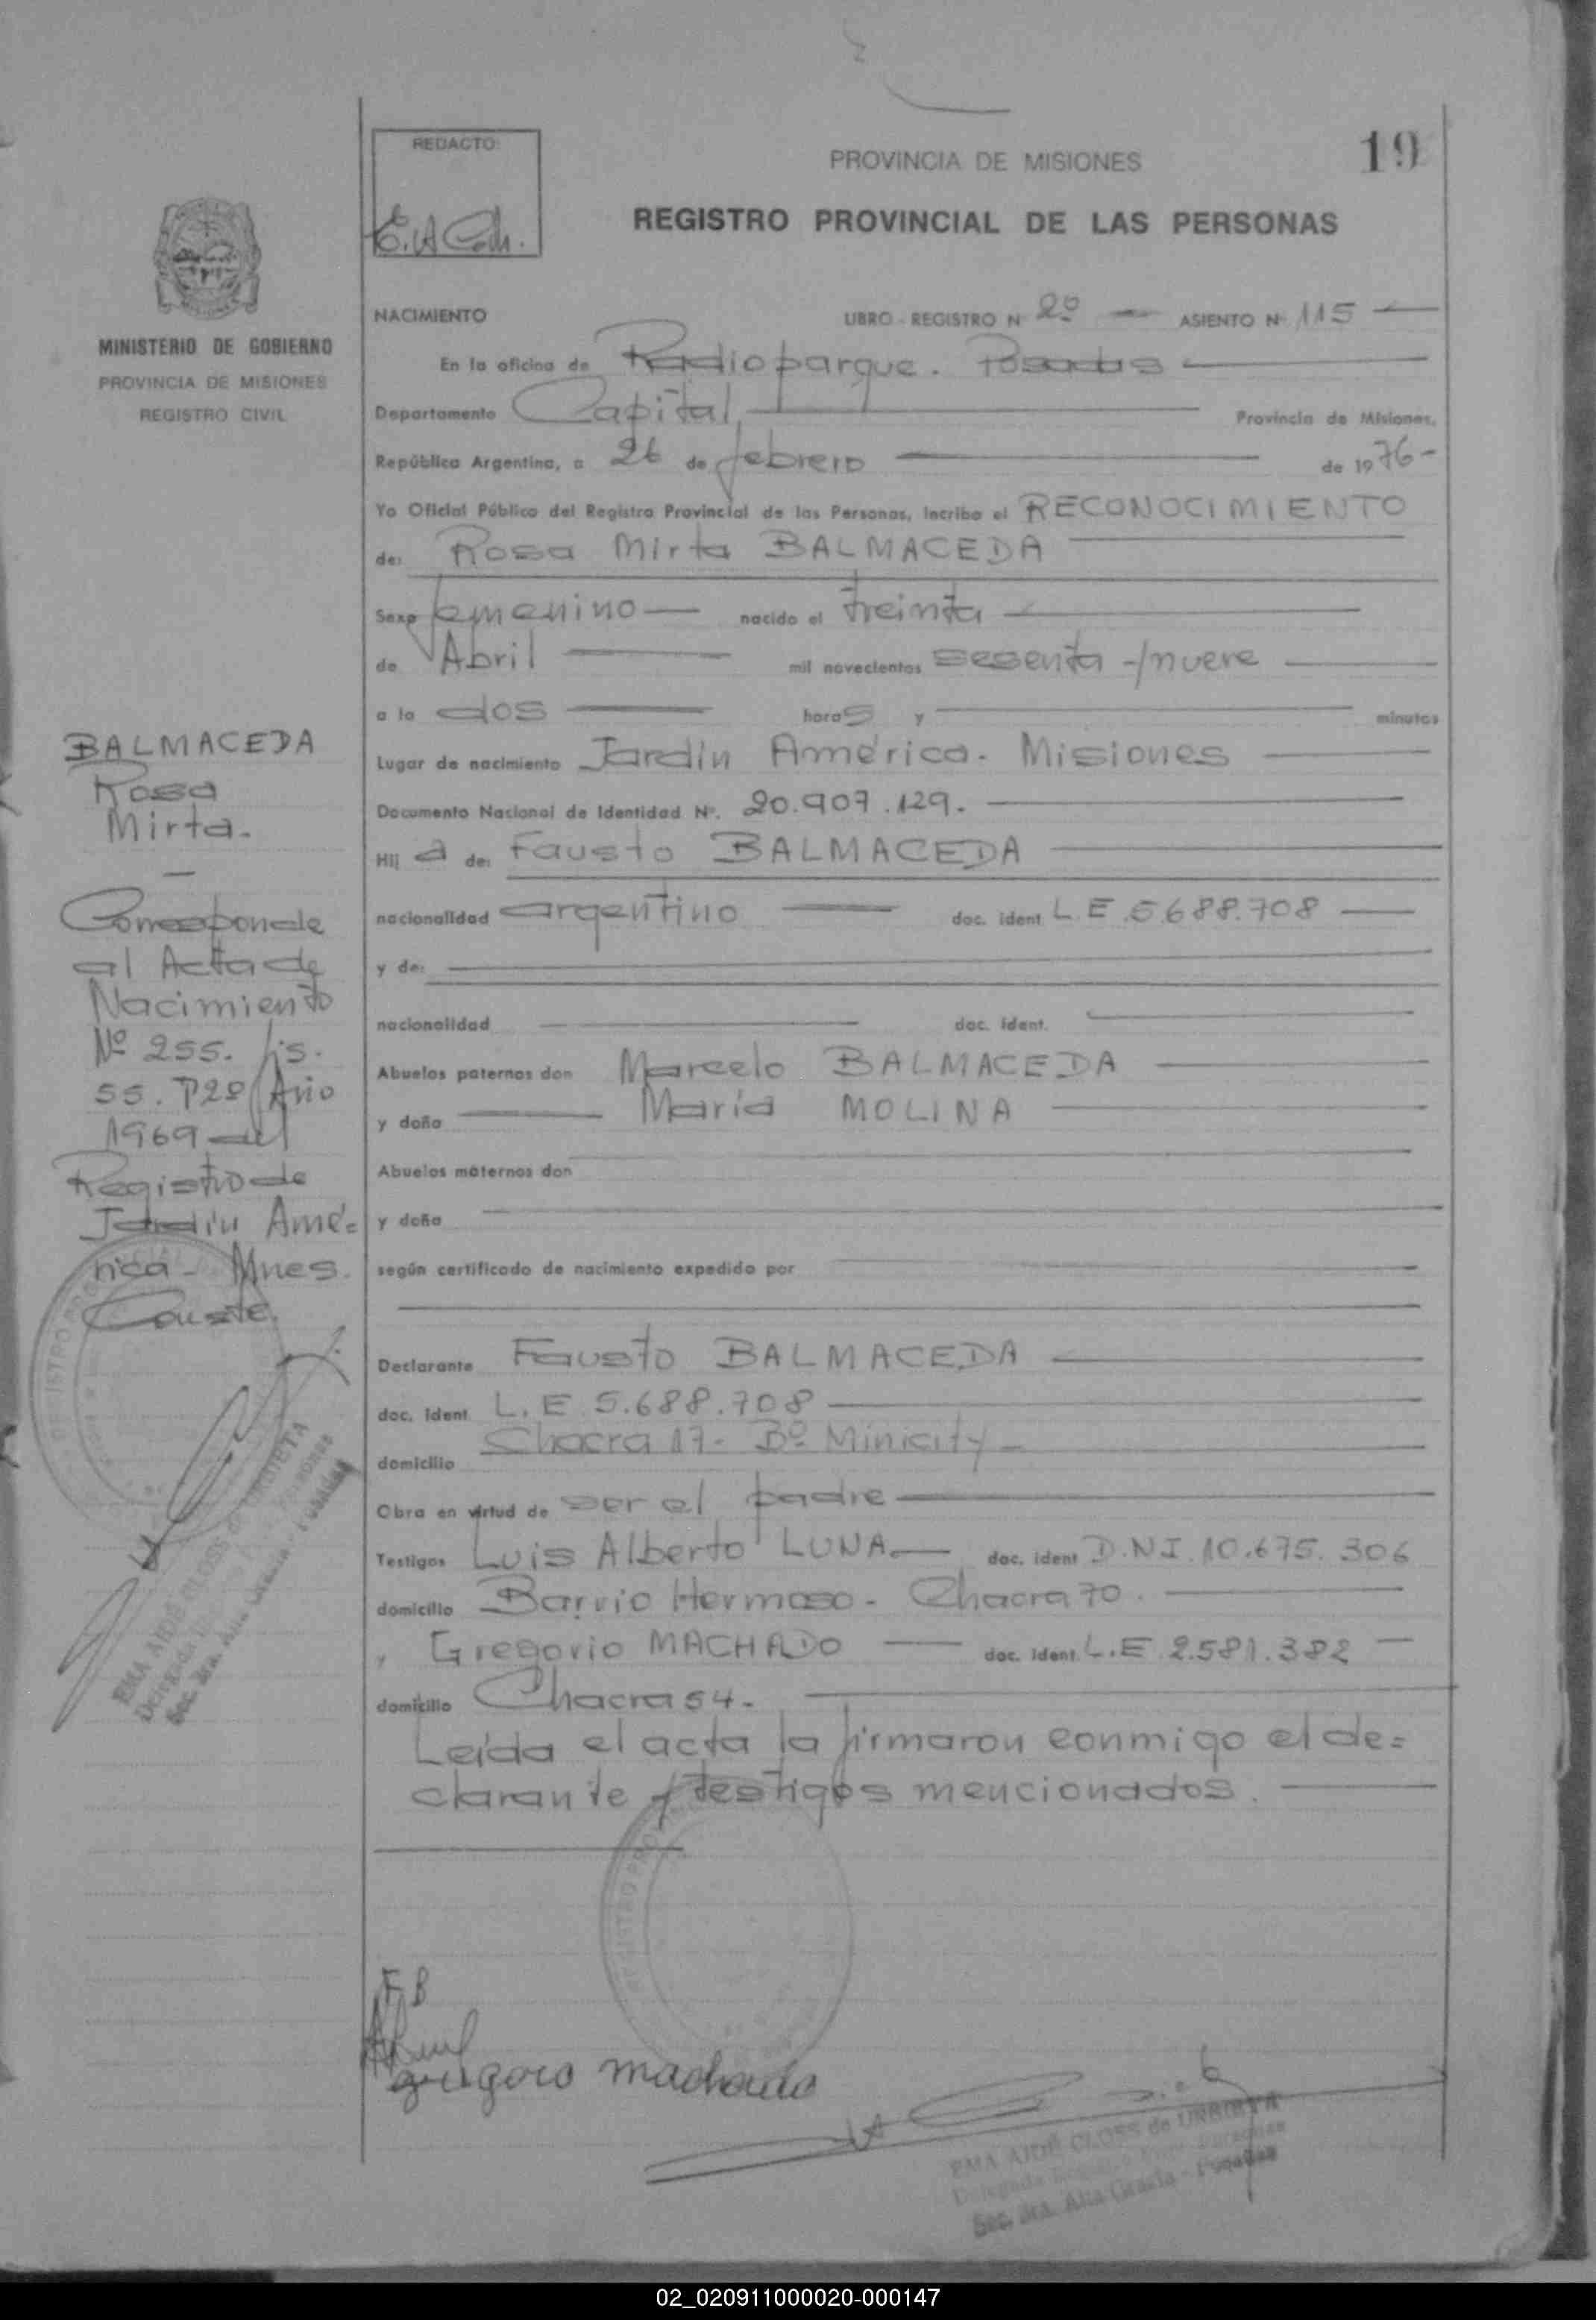 19
REDACTO:
PROVINCIA DE MISIONES
REGISTRO PROVINCIAL DE LAS PERSONAS
MINISTERIO DE GOBIERNO
PROVINCIA DE MISIONES
REGISTRO CIVIL
NACIMIENTO LIBRO - REGISTRO N 2º ASIENTO Nº 115
En la oficina de Radioparque. Posadas
Departamento Capital, Provincia de Misiones,
República Argentina, a 26 de febrero de 1976-
Yo Oficial Público del Registro Provincial de las Personas, Incribo el RECONOCIMIENTO
de: Rosa Mirta BALMACEDA
Sexo femenino nacido el treinta
de Abril mil novecientos sesenta y nueve
a la dos horas y minutos
Lugar de nacimiento Jardín América. Misiones
Documento Nacional de Identidad Nº. 20.907.129.
Hij a de: Fausto BALMACEDA
nacionalidad argentino doc. ident. L.E.5.688.708
y de:
nacionalidad doc. ident.
Abuelos paternos don Marcelo BALMACEDA
y doña María MOLINA
Abuelos maternos don
y doña
según certificado de nacimiento expedido por
Declarante Fausto BALMACEDA
doc. ident L.E 5.688.708
domicilio Chacra 17- Bº Minicity-
Obra en virtud de ser el padre
Testigos Luis Alberto LUNA doc. ident D.N.I.10.675.306
domicilio Barrio Hermoso - Chacra 70.
y Gregorio MACHADO doc. ident. L.E 2.581.382
domicilio Chacra 54.
Leída el acta la firmaron conmigo el de=
clarante y testigos mencionados.
BALMACEDA
Rosa
Mirta.
Corresponde
al Acta de
Nacimiento
Nº 255. fis.
55. Tº2º Año
1969 del
Registro de
Jardín Amé=
rica - Mnes.
Conste.
EMA AIDÉ CLOSS de URRIETA
FB
gregorio machado
EMA AIDÉ CLOSS de URRIETA
Sec. 3ra. Alta Gracia - Posadas
02_020911000020-000147